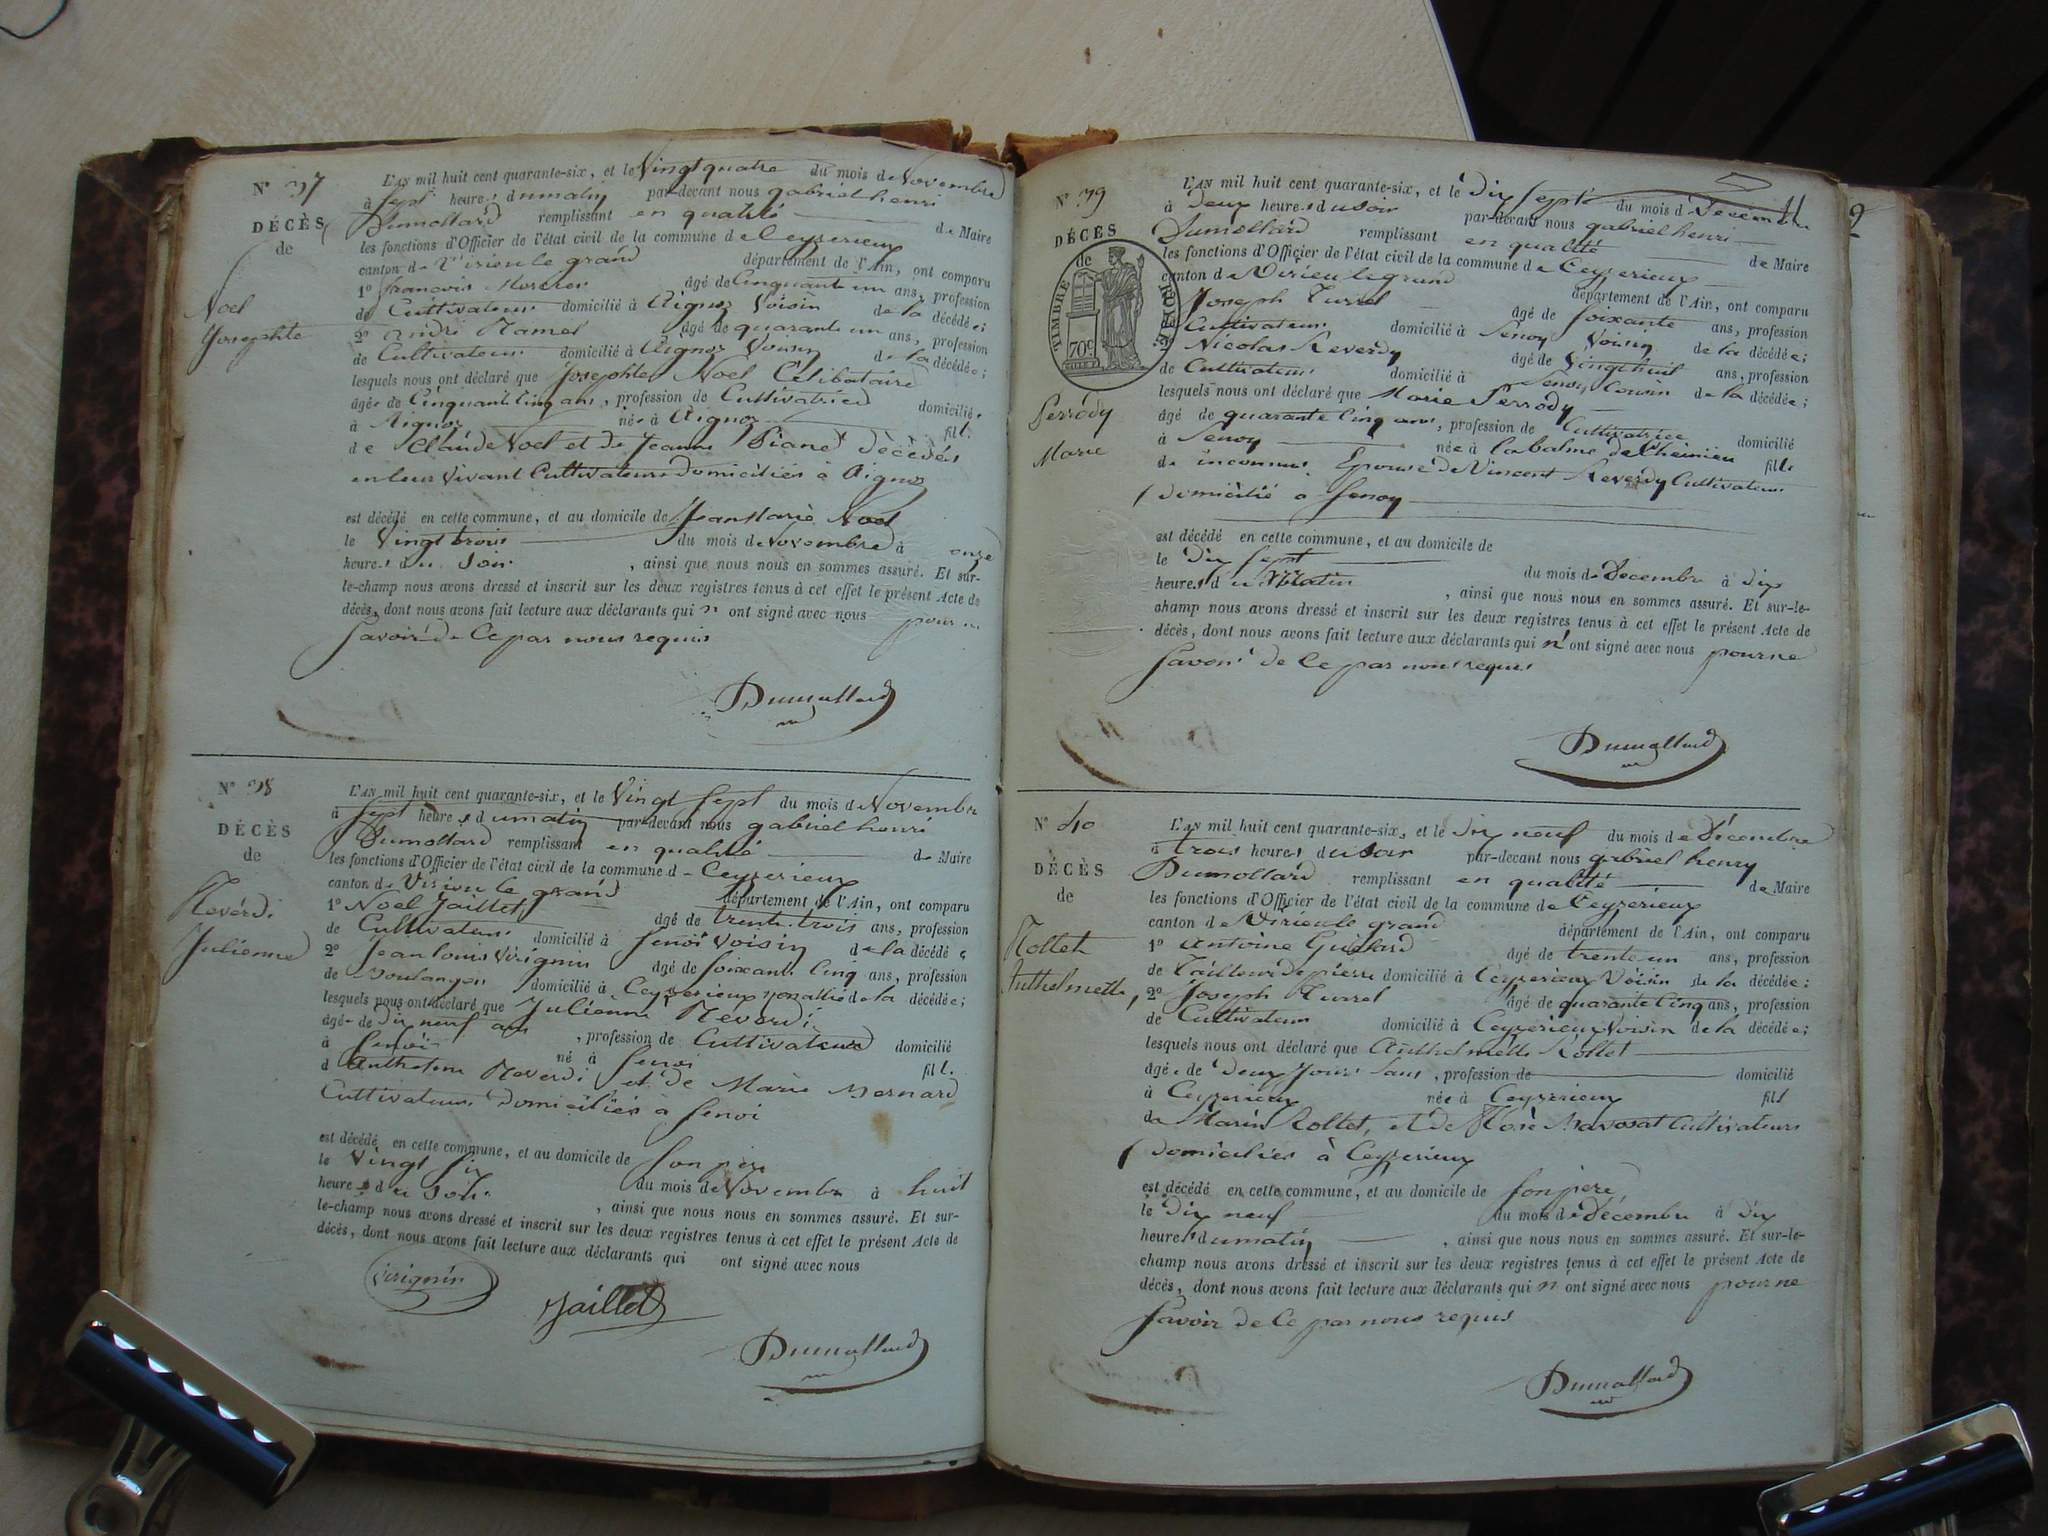 N° 37
DÉCÈS
de
Noel
Josephte
L'AN mil huit cent quarante-six, et le Vingt quatre du mois de Novembre
à sept heures du matin par-devant nous gabriel henri
Dumollard remplissant en qualité de Maire
les fonctions d'Officier de l'état civil de la commune de Ceyzerieux
canton de Virieu le grand département de l'Ain, ont comparu
1° françois âgé de Cinquant un ans, profession
de Cultivateur domicilié à Aignoz Voisin de la décédée;
2° andré Ramel âgé de quarante un ans, profession
de Cultivateur domicilié à Aignoz Voisin de la décédée;
lesquels nous ont déclaré que Josephte Noel Célibataire
âgée de Cinquante Cinq ans, profession de Cultivatrice domiciliée
à Aignoz née à Aignoz fille
de Claude Noel et de Jeanne décédés
en leur vivant Cultivateurs domiciliés à Aignoz
est décédé en cette commune, et au domicile de Jean Marie Noel
le Vingt trois du mois de Novembre à onze
heures du Soir, ainsi que nous nous en sommes assuré. Et sur-
le-champ nous avons dressé et inscrit sur les deux registres tenus à cet effet le présent Acte de
décès, dont nous avons fait lecture aux déclarants qui n ont signé avec nous pour ne
Savoir de Ce par nous requis
Dumollard
N° 38
DÉCÈS
de
Reverdi
Julienne
L'AN mil huit cent quarante-six, et le Vingt Sept du mois de Novembre
à sept heures du matin par-devant nous gabriel henri
Dumollard remplissant en qualité de Maire
les fonctions d'Officier de l'état civil de la commune de Ceyzerieux
canton de Virieu le grand département de l'Ain, ont comparu
1° Noel Jaillet âgé de trente trois ans, profession
de Cultivateur domicilié à Senoi Voisin de la décédée
2° Jean louis Virignin âgé de soixante Cinq ans, profession
de Boulanger domicilié à Ceyzerieux non allié de la décédée;
lesquels nous ont déclaré que Julienne Réverdi
âgée de dix neuf ans, profession de Cultivatrice domicilié
à Senoi né à Senoi fille
d Anthelme Reverdi et de Marie Bernard
Cultivateurs domiciliés à Senoi
est décédé en cette commune, et au domicile de Son père
le Vingt Six du mois de Novembre à huit
heures du Soir, ainsi que nous nous en sommes assuré. Et sur-
le-champ nous avons dressé et inscrit sur les deux registres tenus à cet effet le présent Acte de
décès, dont nous avons fait lecture aux déclarants qui ont signé avec nous
Virignin
Jaillet
Dumollard
N° 39
DÉCÈS
de
TIMBRE
ROYAL
70c
Perrody
Marie
L'AN mil huit cent quarante-six, et le Dix Sept du mois de Décembre
à Deux heures du soir par-devant nous gabriel henri
Dumollard remplissant en qualité de Maire
les fonctions d'Officier de l'état civil de la commune de Ceyzerieux
canton de Virieu le grand département de l'Ain, ont comparu
Joseph Turrel âgé de soixante ans, profession
Cultivateur domicilié à Senoy Voisin de la décédée;
Nicolas Reverdy âgé de Vingt huit ans, profession
de Cultivateur domicilié à Senoy Cousin de la décédée;
lesquels nous ont déclaré que Marie Perrody
âgé de quarante Cinq ans, profession de Cultivatrice domicilié
à Senoy née à la balme de fille
de inconnus Epouse de Vincent Reverdy Cultivateur
domicilié à Senoy
est décédé en cette commune, et au domicile de
le dix sept du mois de Décembre à dix
heures du Matin, ainsi que nous nous en sommes assuré. Et sur-le-
champ nous avons dressé et inscrit sur les deux registres tenus à cet effet le présent Acte de
décès, dont nous avons fait lecture aux déclarants qui n' ont signé avec nous pour ne
savoir de Ce par nous requis
Dumollard
N° 40
DÉCÈS
de
Rollet
Anthelmette
L'AN mil huit cent quarante-six, et le dix neuf du mois de Décembre
à trois heures du soir par-devant nous gabriel henry
Dumollard remplissant en qualité de Maire
les fonctions d'Officier de l'état civil de la commune de Ceyzerieux
canton de Virieu le grand département de l'Ain, ont comparu
1° Antoine Guillard âgé de trente un ans, profession
de Tailleur de pierre domicilié à Ceyzerieux Voisin de la décédée:
2° Joseph Turrel âgé de quarante Cinq ans, profession
de Cultivateur domicilié à Ceyzerieux Voisin de la décédée;
lesquels nous ont déclaré que Anthelmette Rollet
âgée de deux Jours Sans, profession de domicilié
à Ceyzerieux née à Ceyzerieux fille
de Marin Rollet, et de Cultivateurs
domiciliés à Ceyzerieux
est décédé en cette commune, et au domicile de son père
le Dix neuf du mois de Décembre à dix
heures du matin, ainsi que nous nous en sommes assuré. Et sur-le-
champ nous avons dressé et inscrit sur les deux registres tenus à cet effet le présent Acte de
décès, dont nous avons fait lecture aux déclarants qui n ont signé avec nous pour ne
Savoir de Ce par nous requis
Dumollard